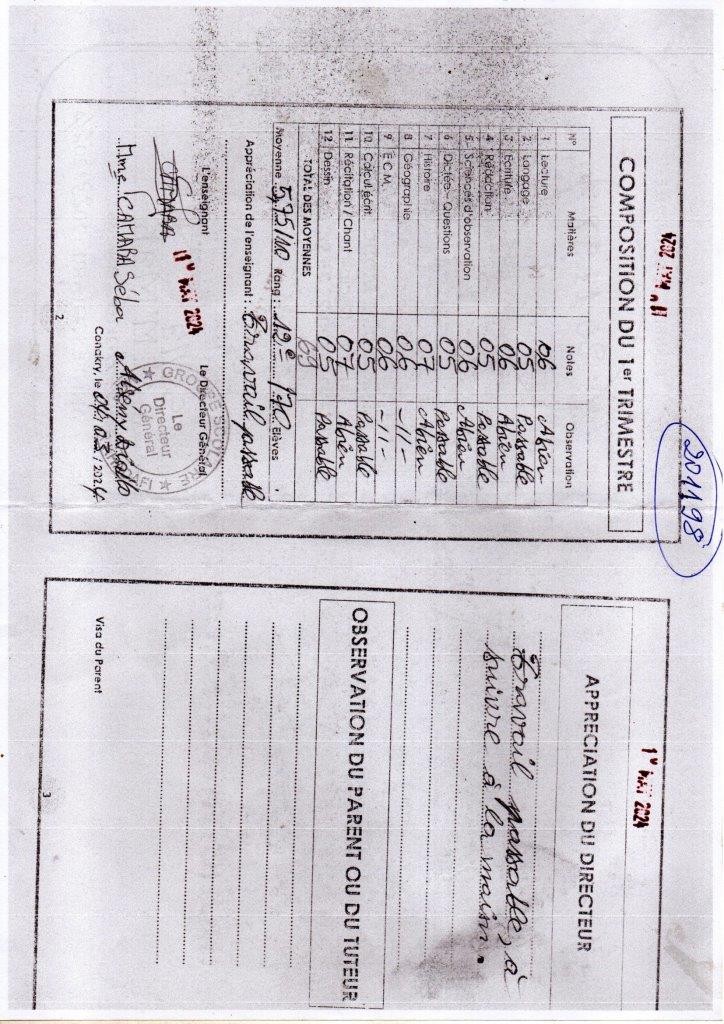 201198
MAI 2024
COMPOSITION DU 1er TRIMESTRE
N° Matières Notes Observation
1 Lecture 06 Abien
2 Langage 05 Passable
3 Ecriture 06 Abien
4 Rédaction 05 Passable
5 Sciences d'observation 06 Abien
6 Dictée - Questions 05 Passable
7 Histoire 07 Abien
8 Géographie 06 -11-
9 E.C.M. 06 -11-
10 Calcul écrit 05 Passable
11 Récitation / Chant 07 Abien
12 Dessin 05 Passable
TOTAL DES MOYENNES 69
Moyenne 5,75/10 Rang : 12e /70 Elèves
Appréciation de l'enseignant : Travail passable
L'enseignant Le Directeur Général
MAI 2024
CAMARA
Le Directeur Général
Mme CAMARA Séba
Conakry, le 2024
2
MAI 2024
APPRECIATION DU DIRECTEUR
Travail passable, à
suivre à la maison.
OBSERVATION DU PARENT OU DU TUTEUR
Visa du Parent
3